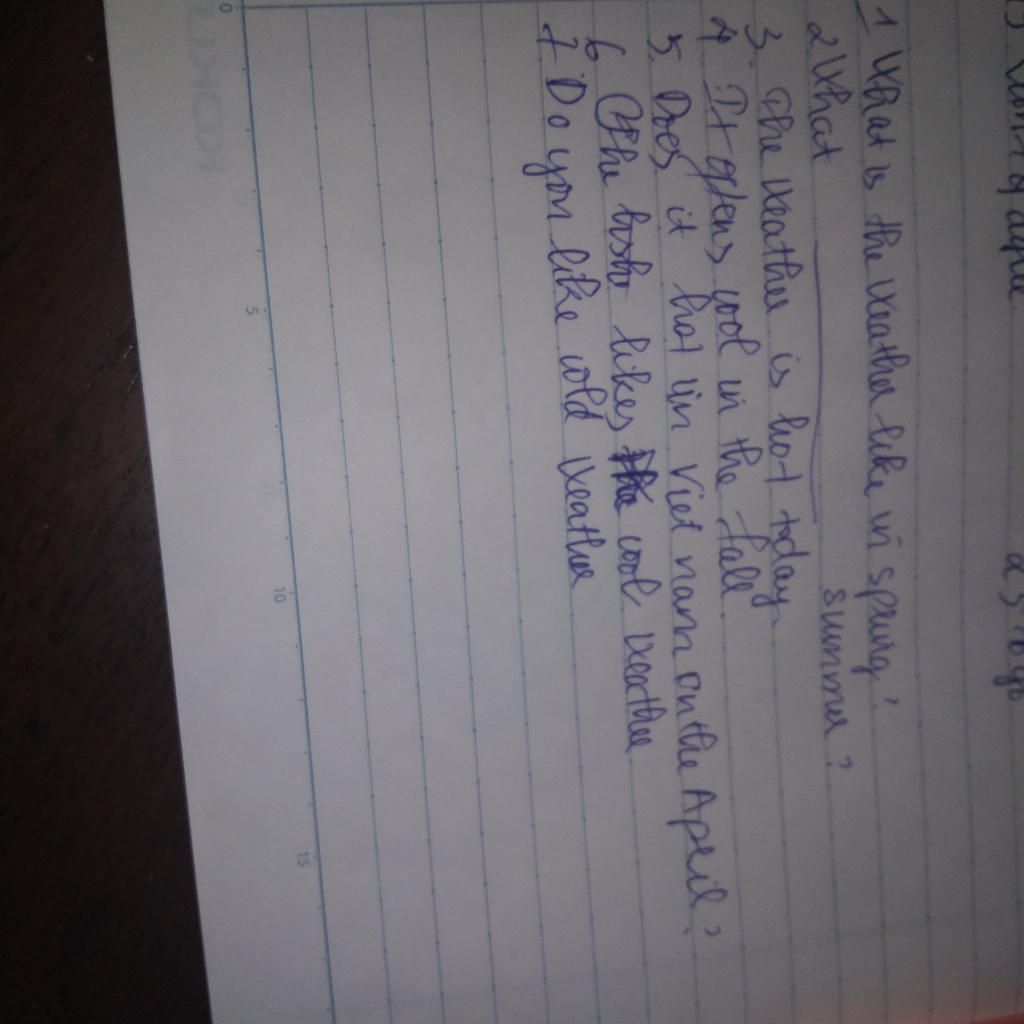 1 What is the weather like in spring?
2 What summer?
3. The weather is hot today
4 It often cool in the fall
5. Does it hot in Viet nam on the April?
6 The likes cool weather
7 Do you like cold weather
0
5
10
15